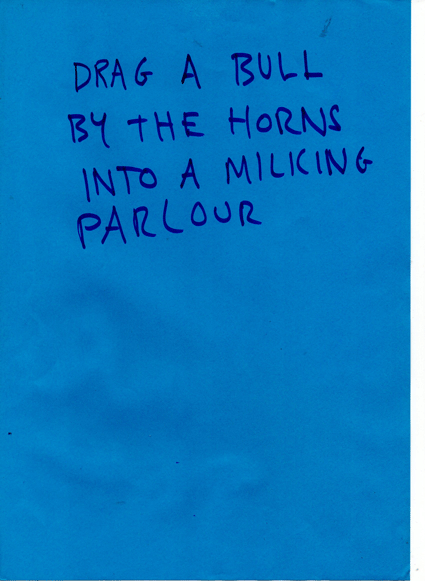 DRAG A BULL
BY THE HORNS
INTO A MILKING
PARLOUR